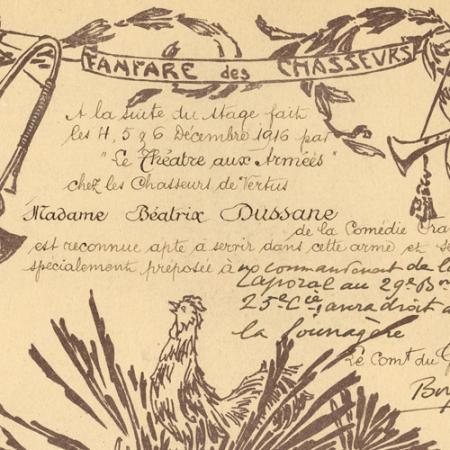 FANFARE des CHASSEURS
A la suite du stage fait
les 4, 5 & 6 Décembre 1916 par
"Le Théâtre aux Armées"
chez les Chasseurs de Vertus
Madame Béatrix Dussane
de la Comédie
est reconnue apte à servir dans cette arme et
spécialement préposée à commandement de la
Caporal au 29e
25e Cie, aura droit
la
Le Comt du